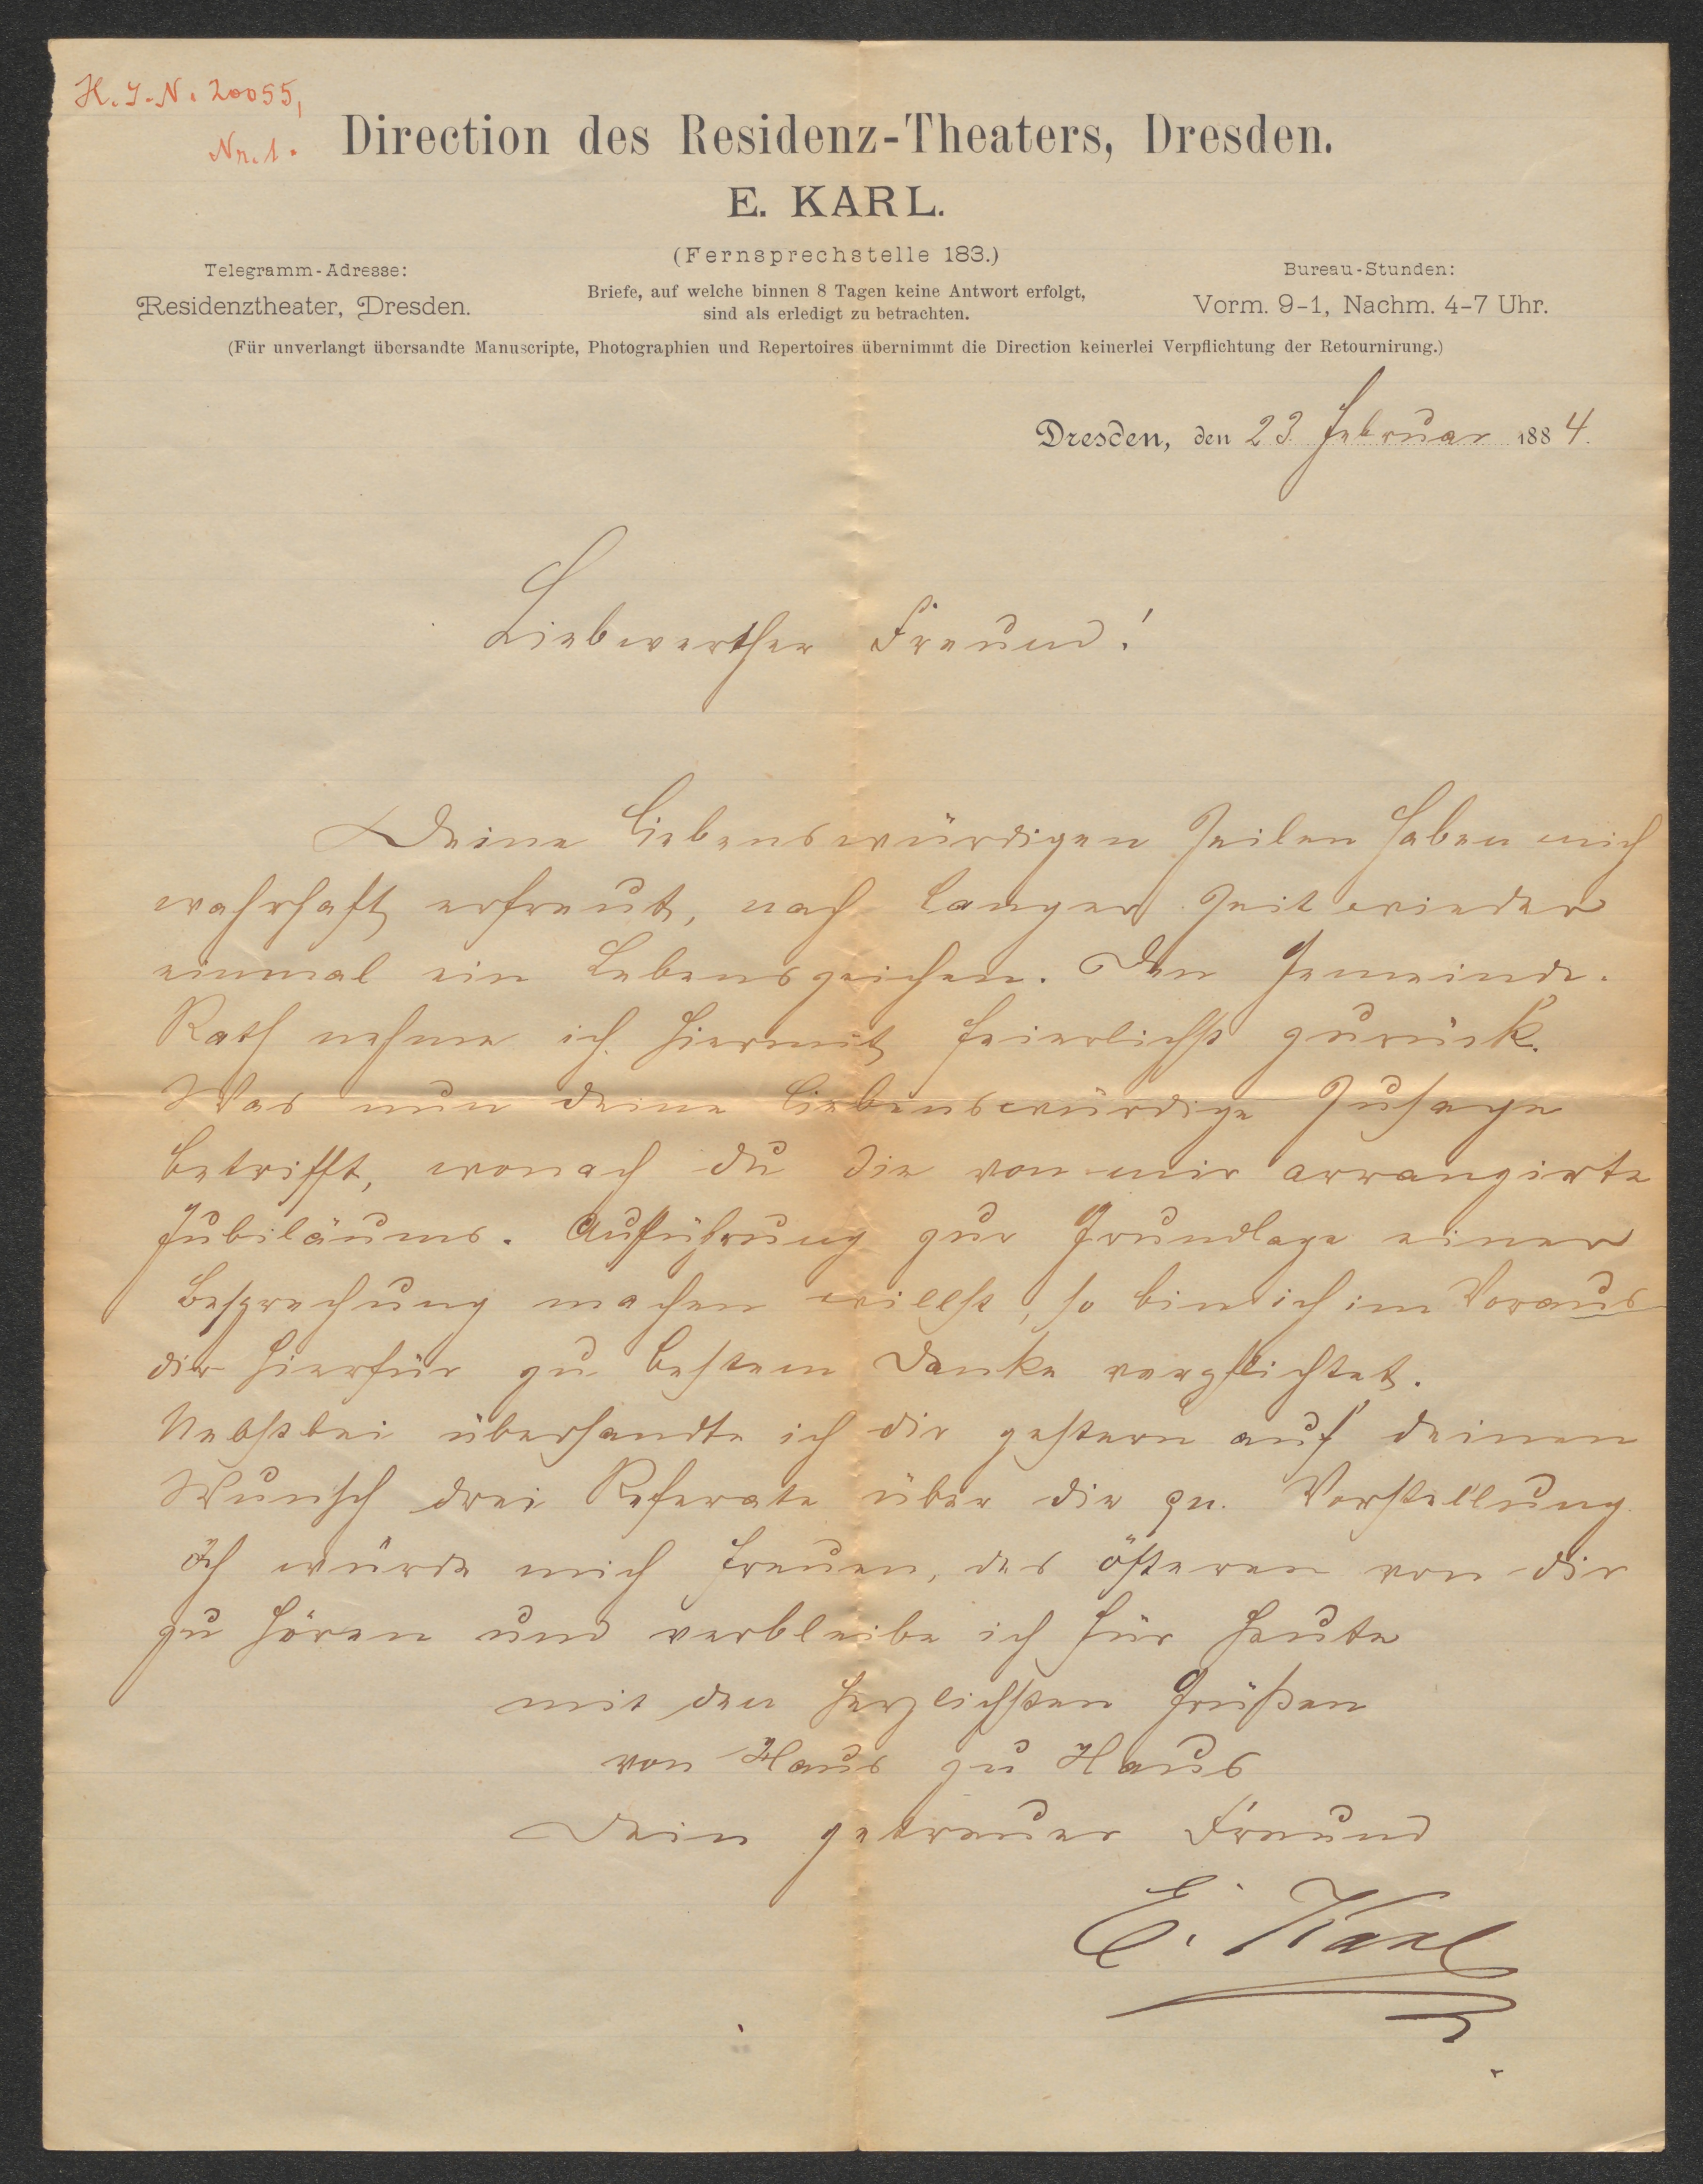 H. I. N. 20055,
Nr. 1.
Direction des Residenz-Theaters, Dresden.
E. KARL.
(Fernsprechstelle 183.)
Telegramm-Adresse:
Residenztheater, Dresden.
Briefe, auf welche binnen 8 Tagen keine Antwort erfolgt,
sind als erledigt zu betrachten.
Bureau-Stunden:
Vorm. 9-1, Nachm. 4-7 Uhr.
(Für unverlangt übersandte Manuscripte, Photographien und Repertoires übernimmt die Direction keinerlei Verpflichtung der Retournirung.)
Dresden, den 23. Februar 1884.
Liebwerther Freund!
Deine liebenswürdigen Zeilen haben mich
wahrhaft erfreut, nach langer Zeit wieder
einmal ein Lebenszeichen. Den Gemeinde-
Rath nehme ich hiermit feierlichst zurück.
Was nun deine liebenswürdige Zusage
betrifft, wonach du die von mir arrangirte
Jubiläums-Aufführung zur Grundlage einer
Besprechung machen willst, so bin ich im Voraus
dir hierfür zu bestem Danke verpflichtet.
Nebstbei übersandte ich dir gestern auf deinen
Wunsch drei Referate über die qu. Vorstellung.
Ich würde mich freuen, des öfteren von dir
zu hören und verbleibe ich für heute
mit den herzlichsten Grüßen
von Haus zu Haus
Dein getreuer Freund
E. Karl